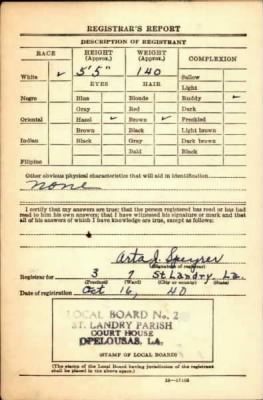 REGISTRAR'S REPORT
DESCRIPTION OF REGISTRANT
RACE HEIGHT (Approx.) WEIGHT (Approx.) COMPLEXION
White ✓ 5'5" 140 Sallow
Light
EYES HAIR
Negro Blue Blonde Ruddy ✓
Gray Red Dark
Oriental Hazel ✓ Brown ✓ Freckled
Brown Black Light brown
Indian Black Gray Dark brown
Bald Black
Filipino
Other obvious physical characteristics that will aid in identification
None
I certify that my answers are true; that the person registered has read or has had
read to him his own answers; that I have witnessed his signature or mark and that
all of his answers of which I have knowledge are true, except as follows:
(Signature of registrar)
Registrar for 3 7 St Landry, La.
(Precinct) (Ward) (City or county) (State)
Date of registration Oct 16, 40
LOCAL BOARD No. 2
ST. LANDRY PARISH
COURT HOUSE
OPELOUSAS, LA.
(STAMP OF LOCAL BOARD)
(The stamp of the Local Board having jurisdiction of the registrant
shall be placed in the above space.)